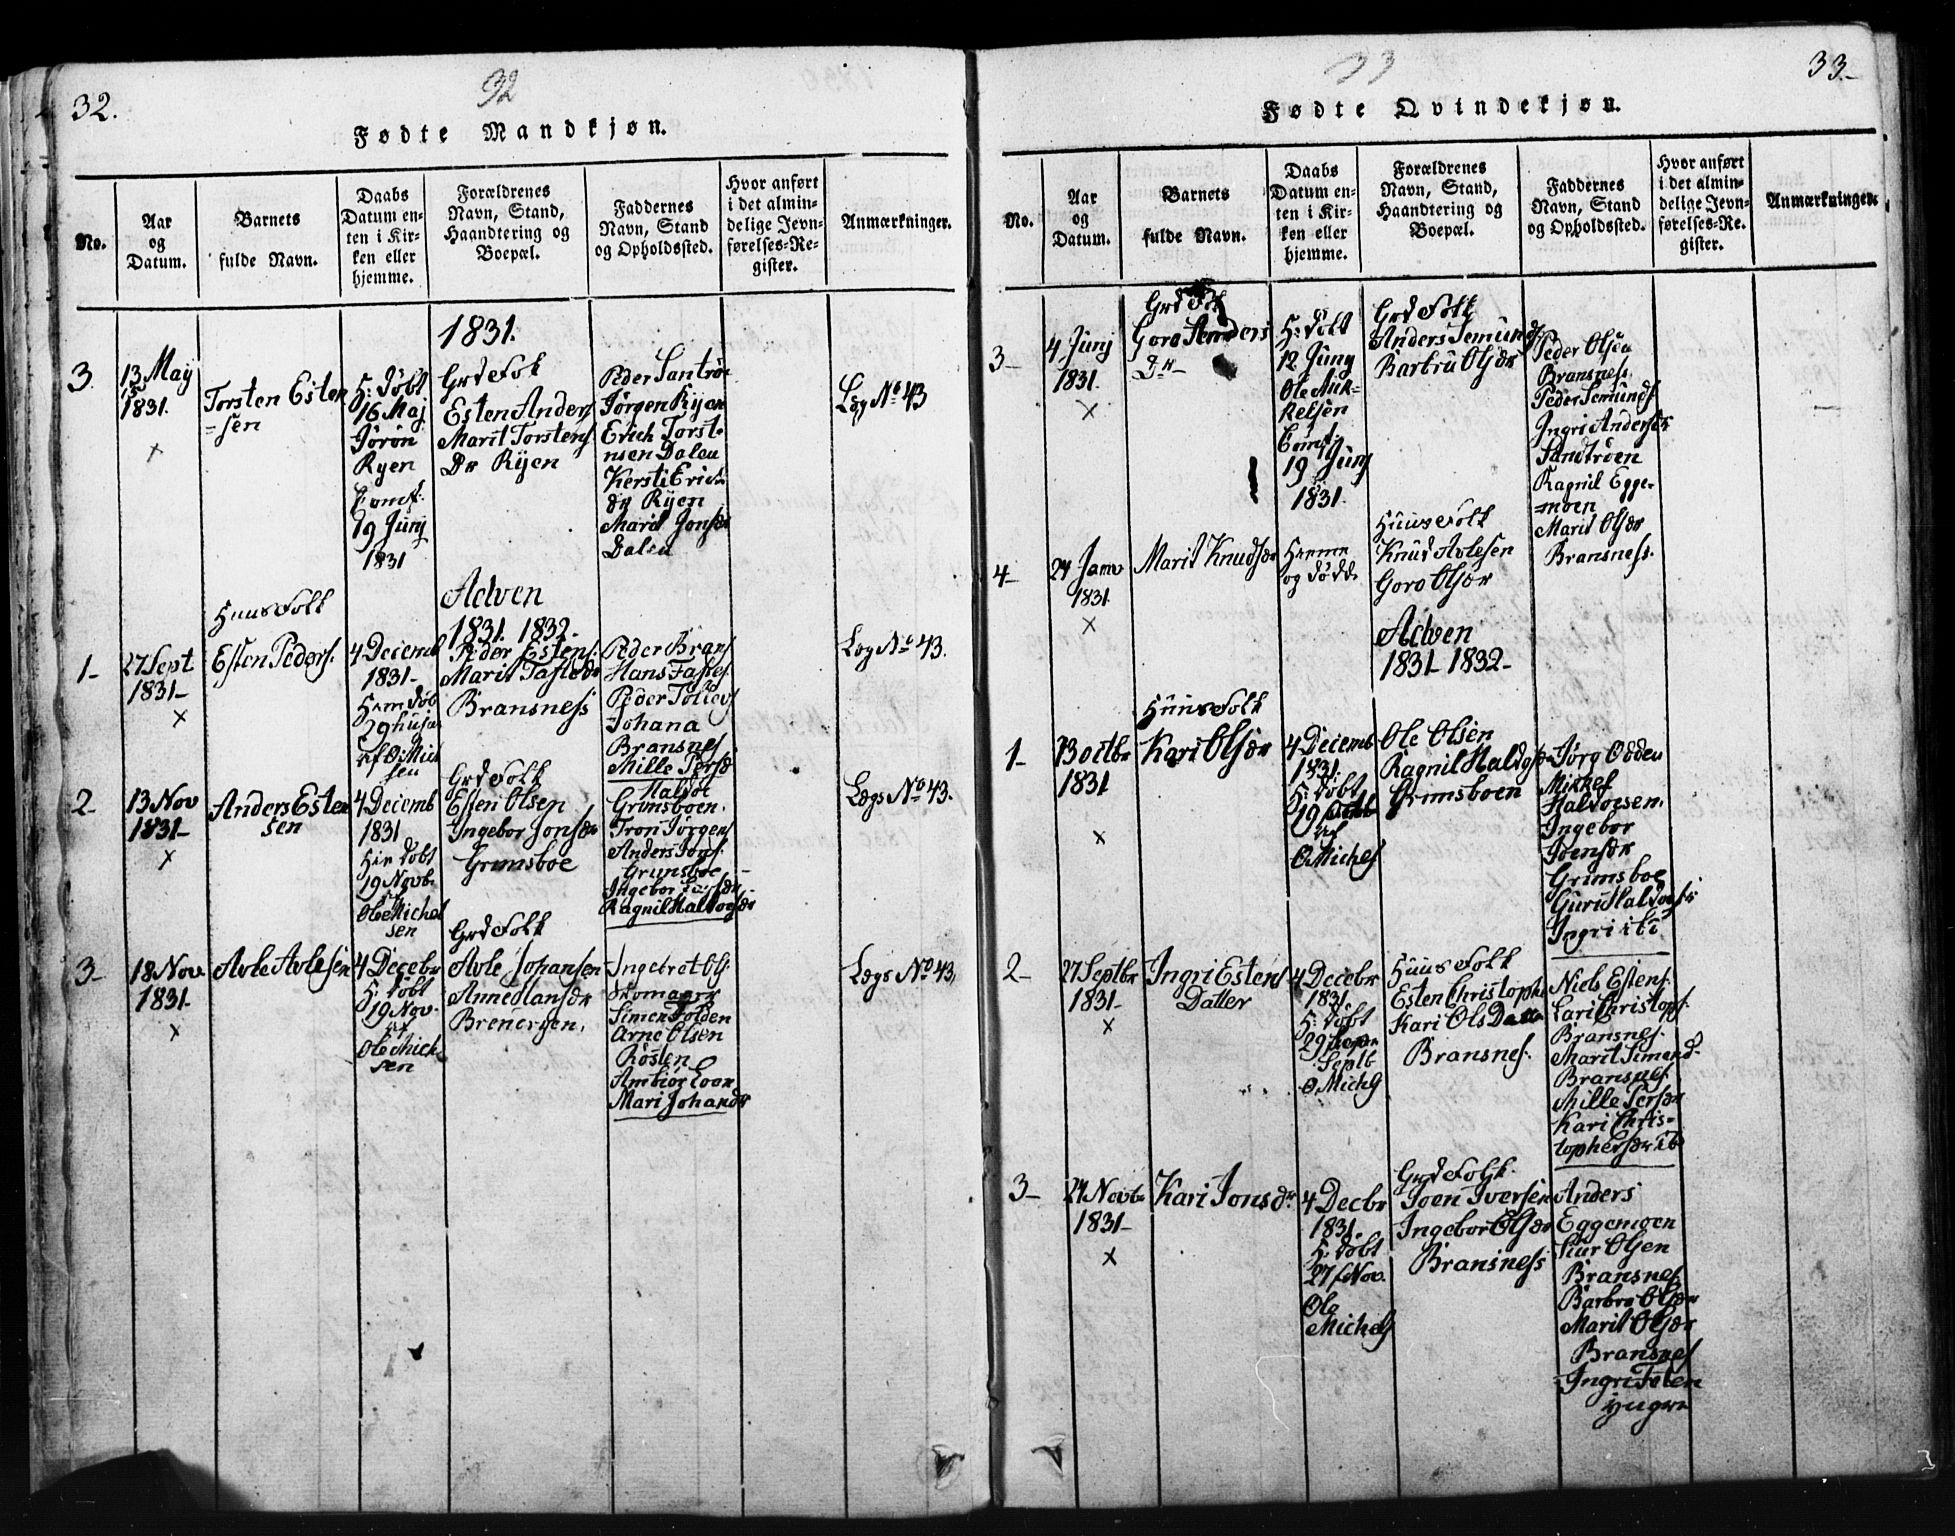 32.
32
Fødte Mandkjøn.
No.
Aar
og
Datum.
Barnets
fulde Navn.
Daabs
Datum en-
ten i Kir-
ken eller
hjemme.
Forældrenes
Navn, Stand,
Haandtering og
Boepæl.
Faddernes
Navn, Stand
og Opholdssted.
Hvor anført
i det almin-
delige Jevn-
førelses-Re-
gister.
Anmærkninger.
1831.
3.
13 May
1831.
×
Torsten Esten
=sen
H: Døbt
16 Maj
Jørøn
Ryen
Comf:
19 Junj
1831
Grd Folk
Esten Anders
Marit Torstens
Dr Ryen
Peder Santrø
Jørgen Ryen
Erich Torst-
nsen Dalen
Kersti Erich
dr Ryen
Marit Jonsdr
Dalen
Læg No 43
Adven
1831. 1832.
1-
27 Sept
1831-
×
Huus Folk
Esten Peders:
4 Decemb
1831-
Hiem døb
29 husa
af O: Mich
sen
Peder Estens:
Marit Tastedr
Bransness
Peder Brans
Hans Fastes
Peder Tollevs
Johana
Bransnes
Mille Persd
Læg No 43.
2-
13 Nov
1831-
×
Anders Esten
sen
4 Decemb
1831
Hie døbt
19 Novb.
Ole Michel
sen
Grd Folk
Esten Olsen
Ingebor Jonsdr
Grimsboe
Haldoe
Grimsboen.
Tron Jørgens
Anders Jons
Grimsboe
Ragnil Haldorsdr
Lægs No 43.
3-
18 Nov.
1831-
×
Avle Avlesen
4 Decebr
H: døbt
19 Nov.
af
Ole Mich
sen
Grd Folk
Avle Johansen
Anne Hansdr
Brenergen.
Ingebret Ols:
Skomager
Simen Folden
Arne Olsen
Røsten
Ambiør Loar
Mari Johandr
Lægs No 43
33
33-
Fødte Qvindekjøn.
No.
Aar
og
Datum.
Barnets
fulde Navn.
Daabs
Datum en-
ten i Kir-
ken eller
hjemme.
Forældrenes
Navn, Stand,
Haandtering og
Boepæl.
Faddernes
Navn, Stand
og Opholdssted.
Hvor anført
i det almin-
delige Jevn-
førelses-Re-
gister.
Anmærkninger.
3-
4 Junj
1831.
×
Grd Folk
Goro Anders
Dr-
H: døbt
12 Juny
Ole Mik-
kelsen
Comf:
19 Junj
1831.
Grd Folk
Anders Semunds
Barbru Olsdr
Peder Olsen
Bransness.
Peder Semunds
Ingri Andersdr
Sandtrøen
Ragnil Egge-
moen
Marit Olsdr
Bransness.
4-
24 Janv
1831
×
Marit Knudsdr
Hieme
og døde
Huus Folk
Knud Avlesen
Goro Olsdr
Adven
1831- 1832-
1-
13 octbr
1831
×
Huus Folk
Kari Olsdr
4 Decemb
1831.
H: døbt
19 Octb
af
O Miches
Ole Olsen
Ragnil Haldosdr
Grimsboen
Jørg Odden
Mikkel
Haldorsen.
Ingebor
Joensdr
Grimsboe
Guri Haldorsdr
Ingri ibi
2-
27 Septbr
1831-
×
Ingri Estens
Datter
4 Decebr
1831.
H: døbt
29
Septb
O Michs
Huus Folk
Esten Christophe
Kari Ols Datter
Bransnes.
Niels Estens
Lari Christops:
Bransnes.
Marit Simend-
Bransnes
Mille Persdr
Kari Chris-
tophersdr ib
3-
24 Novb
1831-
×
Kari Jonsdr
4 Decbr
1831.
H: døbt
27 Nov.
Ole
Michels
Grd Folk
Joen Iversen
Ingebor Olsdr
Bransness
Anders
Eggemoen
Siur Olsen
Bransnes
Barbro Olsdr
Marit Olsdr
Bransnes
Ingri Folen